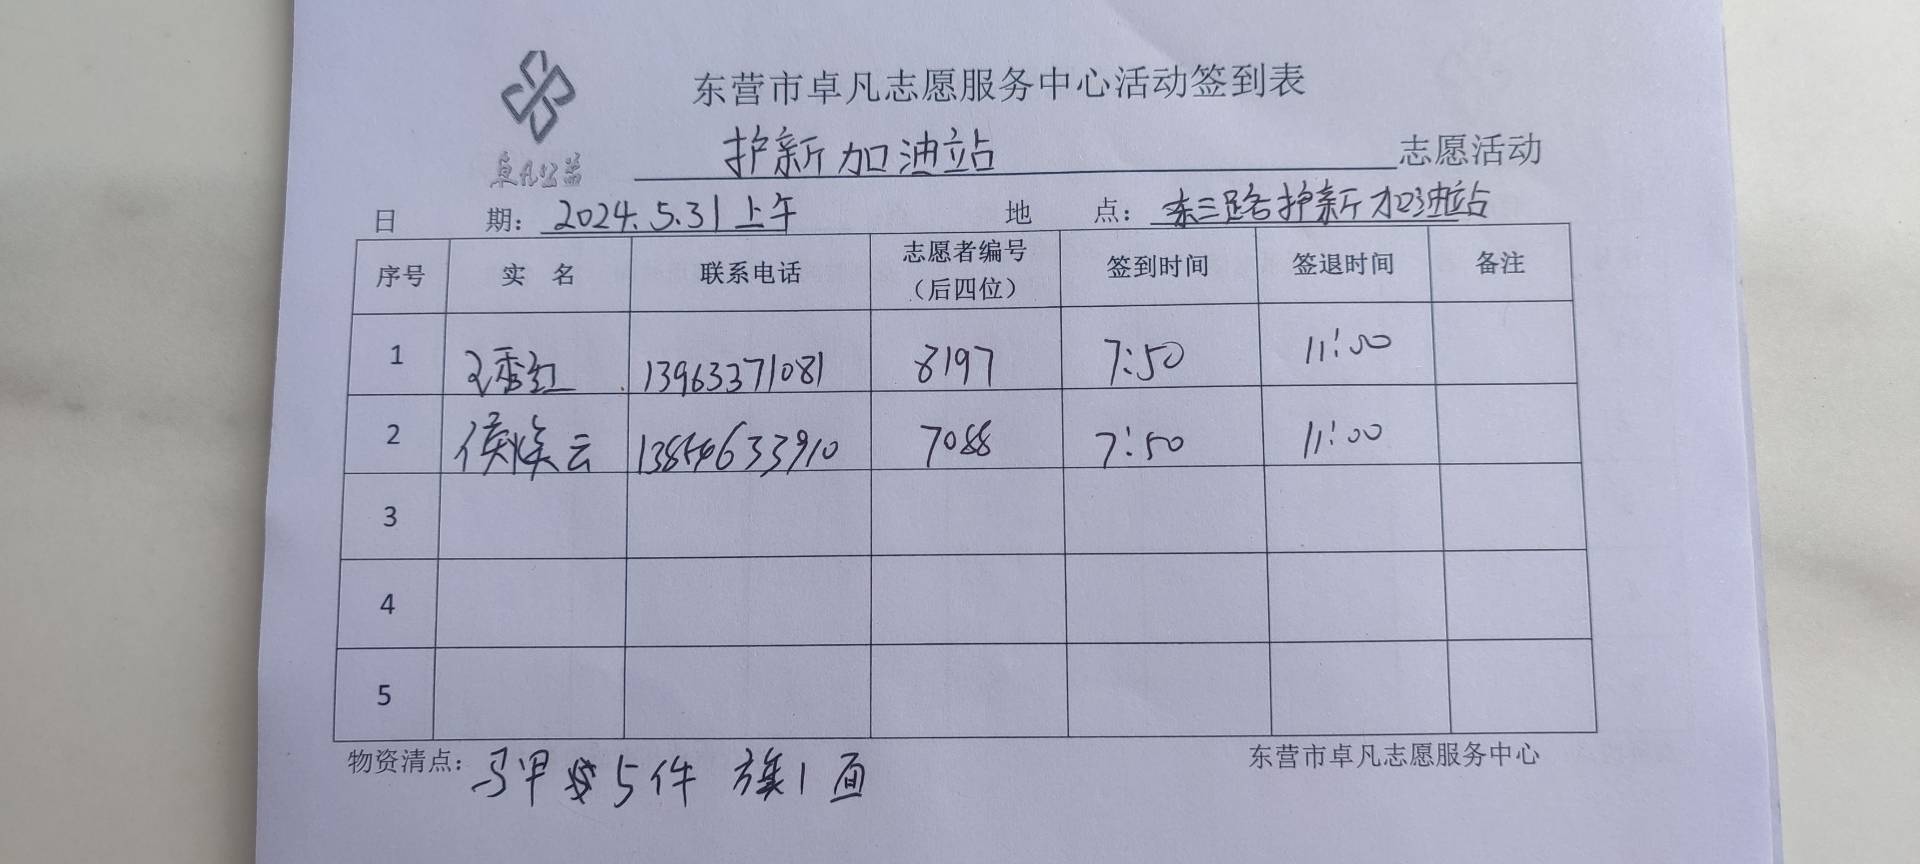 东营市卓凡志愿服务中心活动签到表
卓凡公益
护新加油站 志愿活动
日 期: 2024.5.31上午 地 点: 东三路护新加油站
序号 实 名 联系电话 志愿者编号（后四位） 签到时间 签退时间 备注
1 香红 13963371081 8197 7:50 11:00
2 侯焕云 13854633910 7088 7:50 11:00
3
4
5
物资清点: 马甲5件 旗1面 东营市卓凡志愿服务中心